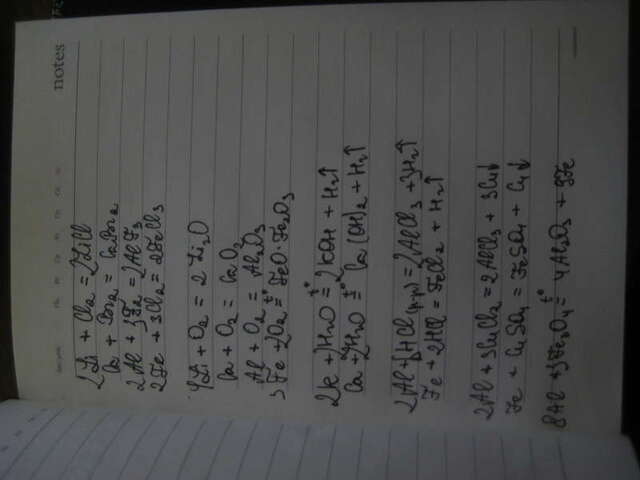 notes
2Li + Cl₂ = 2LiCl
Ca + Br₂ = CaBr₂
2Al + 3F₂ = 2AlF₃
2Fe + 3Cl₂ = 2FeCl₃
4Li + O₂ = 2Li₂O
Ca + O₂ = CaO₂
Al + O₂ = Al₂O₃
3Fe + 2O₂ t°= FeO·Fe₂O₃
2K + 2H₂O = 2KOH + H₂↑
Ca + 2H₂O t°= Ca(OH)₂ + H₂↑
2Al + 6HCl(р-р) = 2AlCl₃ + 3H₂↑
Fe + 2HCl = FeCl₂ + H₂↑
2Al + 3CuCl₂ = 2AlCl₃ + 3Cu↓
Fe + CuSO₄ = FeSO₄ + Cu↓
8Al + 3Fe₃O₄ t°= 4Al₂O₃ + 9Fe